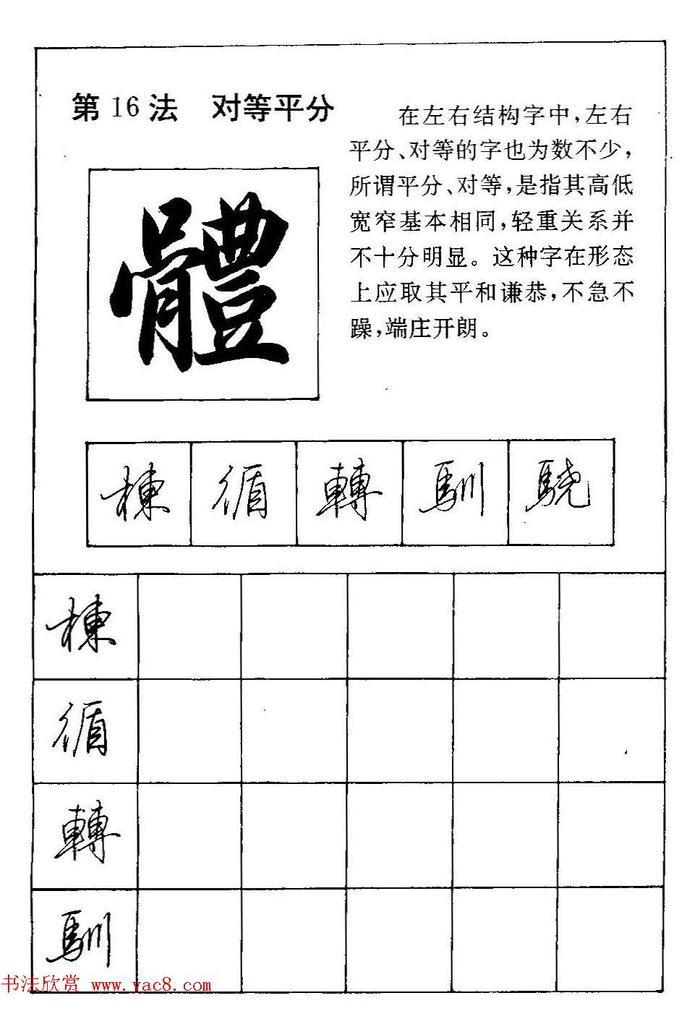 第16法 对等平分
在左右结构字中,左右
平分、对等的字也为数不少,
所谓平分、对等,是指其高低
宽窄基本相同,轻重关系并
不十分明显。这种字在形态
上应取其平和谦恭,不急不
躁,端庄开朗。
體
棟 循 轉 馴 驍
棟
循
轉
馴
书法欣赏 www.yac8.com